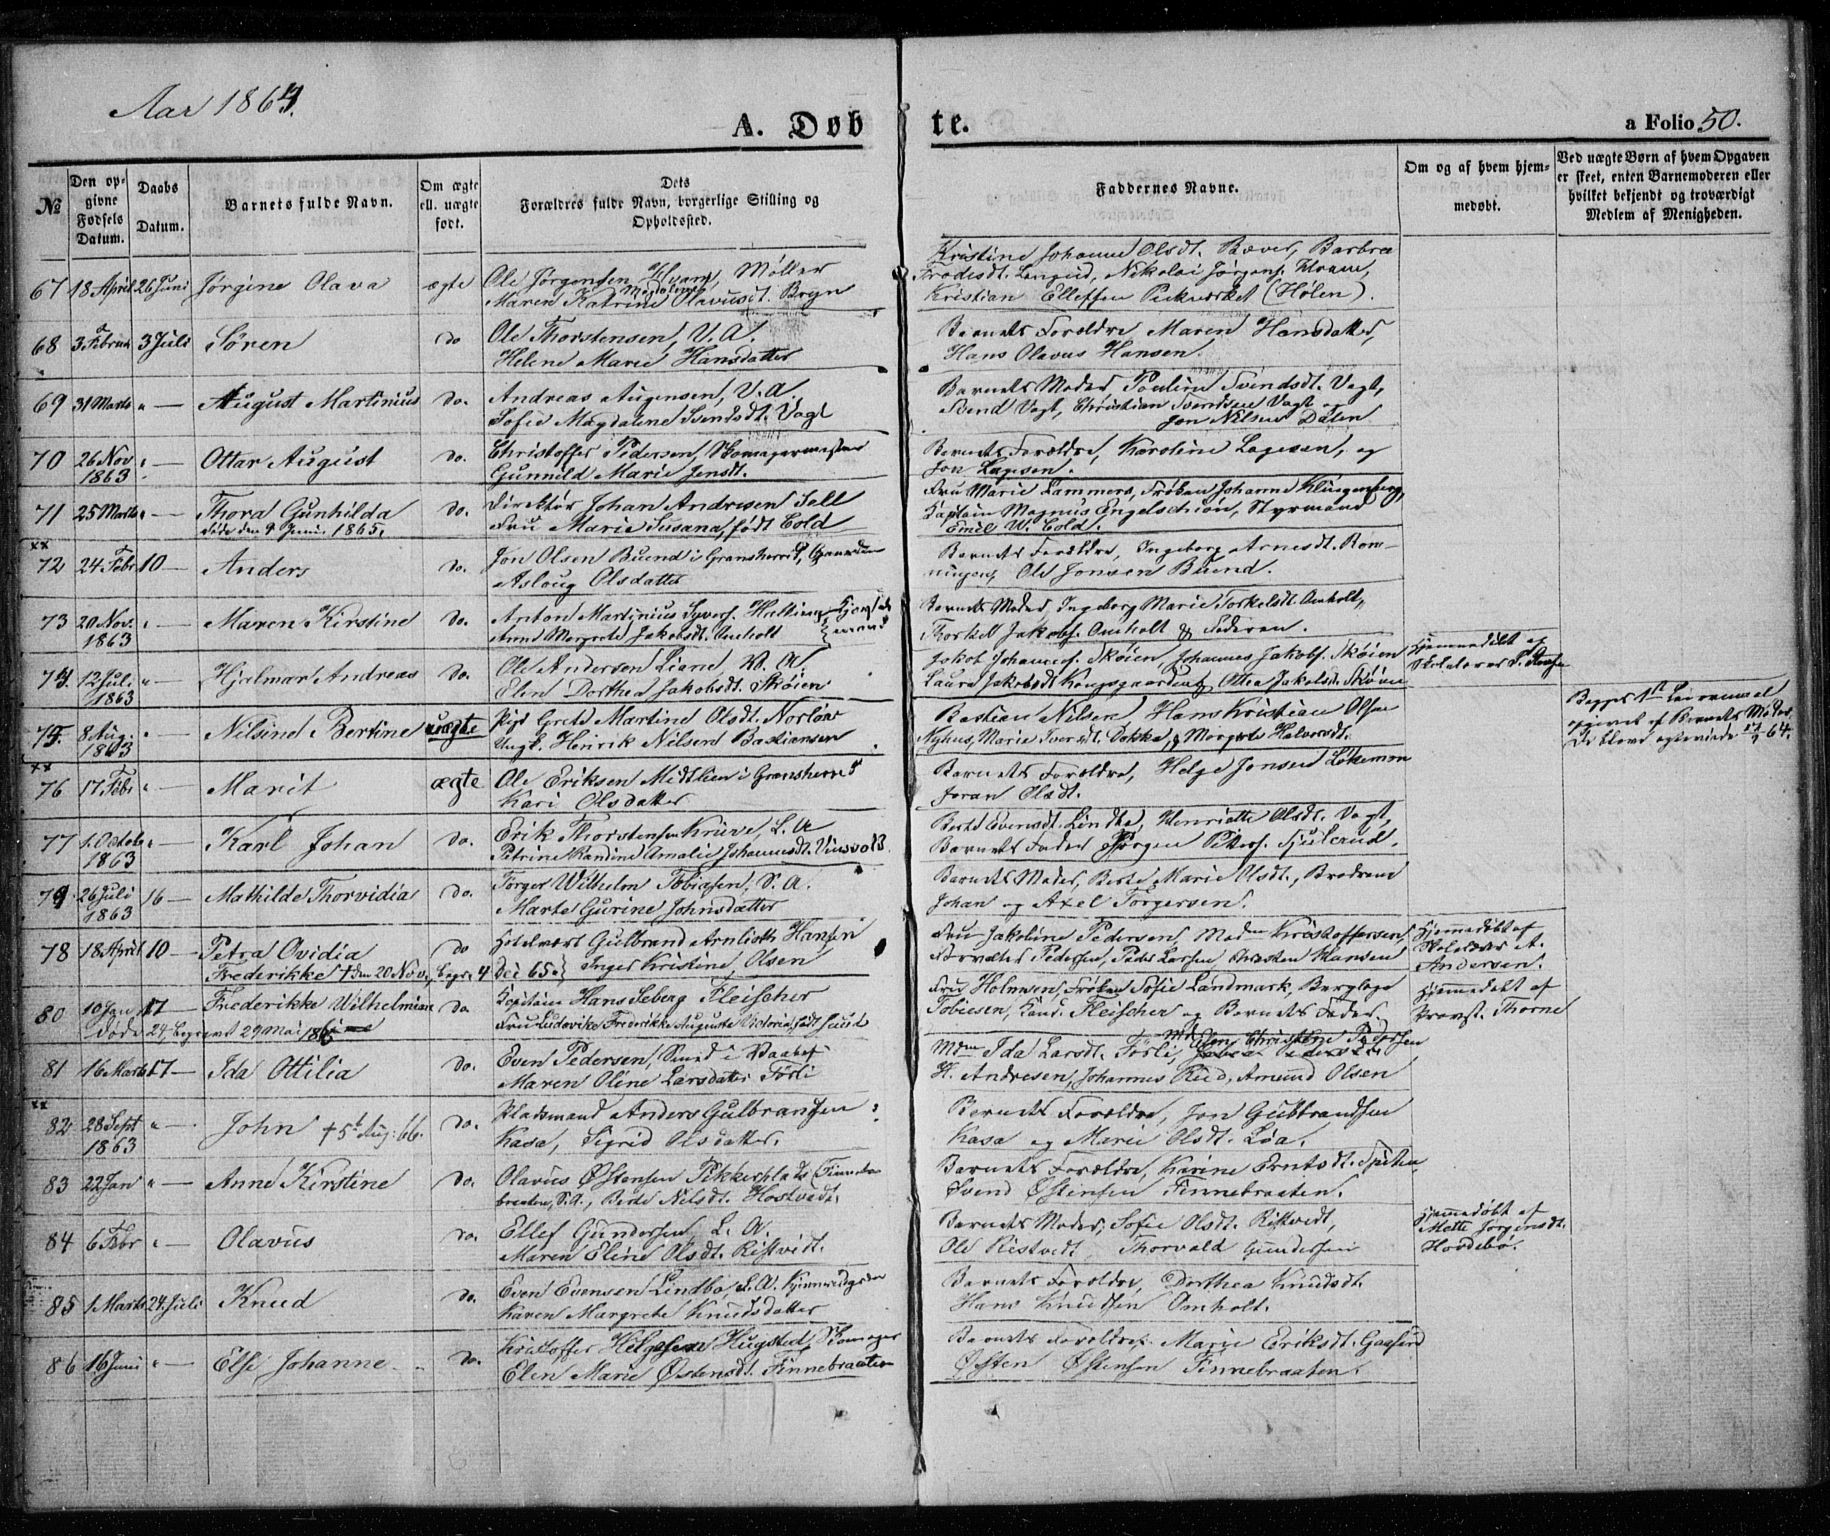 Aar 1864.
A. Døbte.
a Folio 50.
№
Den opgivne Fødsels Datum.
Daabs Datum.
Barnets fulde Navn.
Om ægte ell. uægte født.
Dets Forældres fulde Navn, borgerlige Stilling og Opholdssted.
Faddernes Navne.
Om og af hvem hjemmedøbt.
Ved uægte Børn af hvem Opgaven er skeet, enten Barnemoderen eller hvilket bekjendt og troværdigt Medlem af Menigheden.
67 18 April 26 Juni Jørgine Olava ægte Ole Jørgensen Hvam, Møller
Maren Katrine Olavusdt. Bryn
Kristine Johanne Olsdt. Bæver, Barbra
Nikolai Jørgens. Hvam,
Kristian Ellefsen (Hølen).
68 3 Februar 3 Juli Søren do Ole Thorstensen, V.A.
Helene Marie Hansdatter
Barnets Forældre Maren Hansdatter,
Hans Olavus Hansen.
69 31 Marts " — August Martinius do. Andreas Augensen, V.A.
Sofie Magdalene Svendsdt. Vagt
Barnets Moder, Pauline Svendsdt. Vagt,
Svend Vagt, Christian Svendsen Vagt og
Jon Nilsen Dalen
70 26 Nov. 1863 " — Ottar August do. Christoffer Pedersen, Skomagermester
Gunnild Marie Jensdt.
Barnets Forældre, Karoline Lagesen, og
Jon Lagesen.
71 25 Marts " — Thora Gunhilda do. Direktør Johan Andresen Sell
Døde den 9 Juni 1865.
Fru Marie Susana, født Cold
Fru Marie Lammers, Frøken Johanne Klingenberg,
Kaptein Magnus Engelschiøn, Styrmand
Emil W. Cold.
xx
72 24 Febr 10 — Anders do. Jon Olsen Buend i Gransherred, Gaardm.
Asloug Olsdatter
Barnets Forældre, Ingeborg Arnesdt. Rom-
ningen, Ole Jonsen Buend.
73 20 Nov. 1863 " — Maren Kirstine do. Anton Martinius Syvers.
Anne Margrete Jakobsdt. Omholt
Barnets Moder, Ingeborg Marie Torkelsdt. Omholt,
Thorkel Jakobs. Omholt & Faderen.
74. 12 Jul. 1863 " — Hjelmar Andreas do. Ole Andersen Liane, V.A.
Elen Dorthea Jakobsdt. Skøien
Jakob Johannes. Skøien, Johannes Jakobs. Skøien
Laura Jakobsdt Kongsgaarden & Othea Jakobsdt. Skøien
Hjemmedøbt af
75. 8 Aug. 1863 " Nilsine Bertine uægte Pige Grete Martine Olsdt. Norløw
Ungk. Henrik Nilsen Bastiansen
Bastian Nilsen, Hans Kristian Olsen
Nyhus, Marie Iversdt. Dokka, & Margrete Halvorsdt.
Begges 1st Leiermaal
opgivet af Barnets Moder.
De bleve egteviede 64.
xx
76 17 Febr " Marit ægte Ole Eriksen Midtlien i Gransherred
Kari Olsdatter
Barnets Forældre, Helge Jonsen Løkemm
Joran Olsdt.
77 1 October 1863 " — Karl Johan do. Erik Thorstensen Kruve, L.A
Petrine Randine Amalie Johannesdt. Vinsvold.
Berte Evensdt. Lindbo, Henriette Olsdt. Vagt,
Barnets Fader Jørgen Peters. Fjulsrud.
79 26 Juli 1863 16 — Mathilde Thorvidia do. Torger Wilhelm Tobiasen, S.A.
Marte Gurine Johnsdatter
Barnets Moder, Berte Marie Olsdt., Brødrene
Johan og Axel Torgersen.
78 18 April 10 — Petra Ovidia do Hotelvært Gulbrand Arnlioth Hansen
Frederikke † den 20 Nov., begr. 4 Dec 65. Inger Kristine Olsen
Fru Jakobine Pedersen, Madm Kristoffersen,
Pedersen, Peder Larsen, Hansen
Hjemmedøbt af
A. Andersen.
80 10 Jan 17 — Frederikke Wilhelmine do Kaptein Hans Seberg Fleischer
Døde 24, begravet 29 Mai 186
Fru Ludovike Frederikke Auguste Victoria, født Juul
Fru Holmsen, Frøken Sofie Landmark, Berglæge
Tobiesen, Kand. Fleischer og Barnets Fader.
Hjemmedøbt af
Provst. Thorne
81 16 Marts 17 — Ida Ottilia do. Even Pedersen, Smed i
Maren Oline Larsdatter Førli
Mdm Ida Larsdt. Førli,
H. Andresen, Johannes Rud, Amund Olsen
xx
82 28 Sept 1863 " — John † 5t Aug. 66. do. Pladsmand Anders Gulbrandsen
Kasa, Sigrid Olsdatter.
Barnets Forældre, Jon Gulbrandsen
Kasa og Marie Olsdt. Løa.
83 22 Jan " — Anne Kirstine do. Olavus Østensen Pikkerplads (Finne-
braaten, S.A., Berte Nilsdt. Hostvedt.
Barnets Forældre, Karine
Svend Østensen Finnebraaten.
84 6 Febr " — Olavus do. Ellef Gundersen, L.A.
Maren Eline Olsdt. Ristvedt.
Barnets Moder, Sofie Olsdt. Ristvedt,
Ole Ristvedt Thorvald Gundersen
Hjemmedøbt af
Mette Jørgensdt.
Hovdebø.
85 1 Marts 24. Juli Knud do. Even Evensen Lindbo, S.A.
Karen Margrete Knudsdatter
Barnets Forældre, Dorthea Knudsdt.
Hans Knudsen Omholt.
86 16 Juni " — Else Johanne do. Kristoffer Helgesen Hugsted, Skomager
Elen Marie Østensdt. Finnebraaten
Barnets Forældre, Marie Eriksdt.
Østen Østensen Finnebraaten.